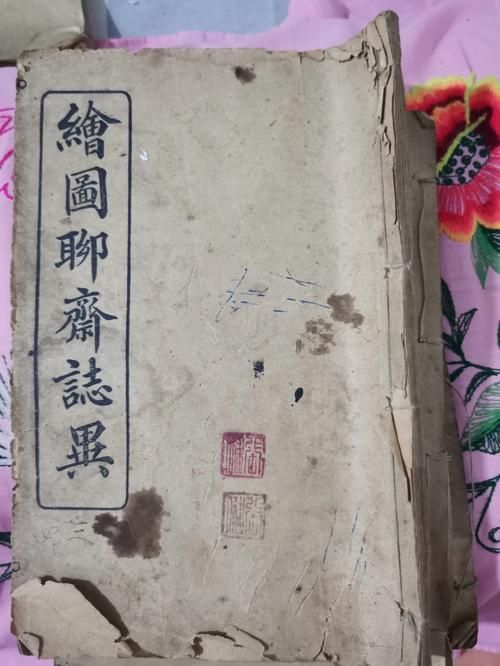 繪圖聊齋誌異